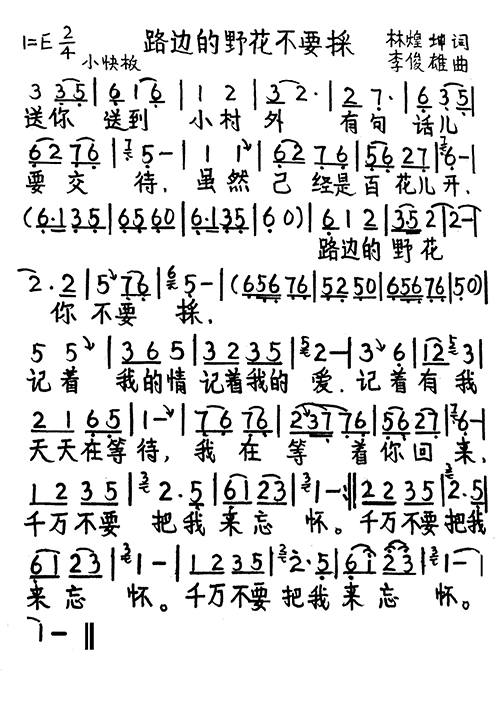 1=E 2/4 小快板 路边的野花不要採 林煌坤词
李俊雄曲
3 3 5 | 6 1 6 | 1 2 | 3 2· | 2 7· | 6 3 5 |
送你 送到 小村 外 有句 话儿
6 2 7 6 | 5 - | 1 1 | 6 2 7 6 | 5 6 2 7 | 6 - |
要 交 待, 虽然 已 经是 百花儿 开,
(6·1 3 5 | 6 5 6 0 | 6·1 3 5 | 6 0) | 6 1 2 | 3·5 2 | 2 - |
路边的 野 花
2·2 | 5 7 6 | 5 - | (6 5 6 7 6 | 5 2 5 0 | 6 5 6 7 6 | 5 0)
你 不要 採,
5 5 | 3 6 5 | 3 2 3 5 | 2 - | 3 6 | 1 2 3 |
记着 我的情 记着我的 爱, 记着有我
2 1 6 5 | 1 - | 7 6 7 6 | 2 3 7 7 6 | 5 6 2 7 | 6 - |
天天在等待, 我在等 着你回来,
1 2 3 5 | 2·5 | 6 1 2 3 | 1 - :|| 2 2 3 5 | 2·5 |
千万不要 把我来忘 怀。千万不要把我
6 1 2 3 | 1 - | 1 2 3 5 | 2·5 | 6 1 2 3 | 1 - |
来忘 怀。千万不要把我来忘 怀。
1 - ||